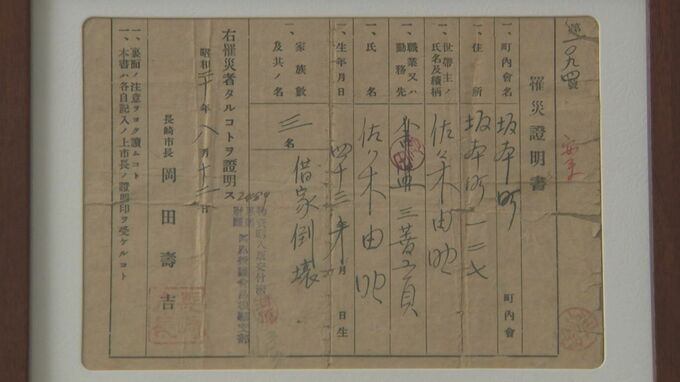 罹災證明書
一、町內會名 坂本町 町內會
一、住所 坂本町一二七
一、世帶主ノ氏名及續柄 佐々木由
一、職業又ハ勤務先 三菱工員
一、氏名 佐々木由
一、生年月日 四十三年 月 日生
一、家族數及其ノ名 三名
借家倒壞
右罹災者タルコトヲ證明ス
昭和二十年八月十二日
長崎市長 岡田壽吉
一、裏面ノ注意ヲヨク讀ムコト
一、本書ハ各自記入ノ上市長ノ證明印ヲ受ケルコト